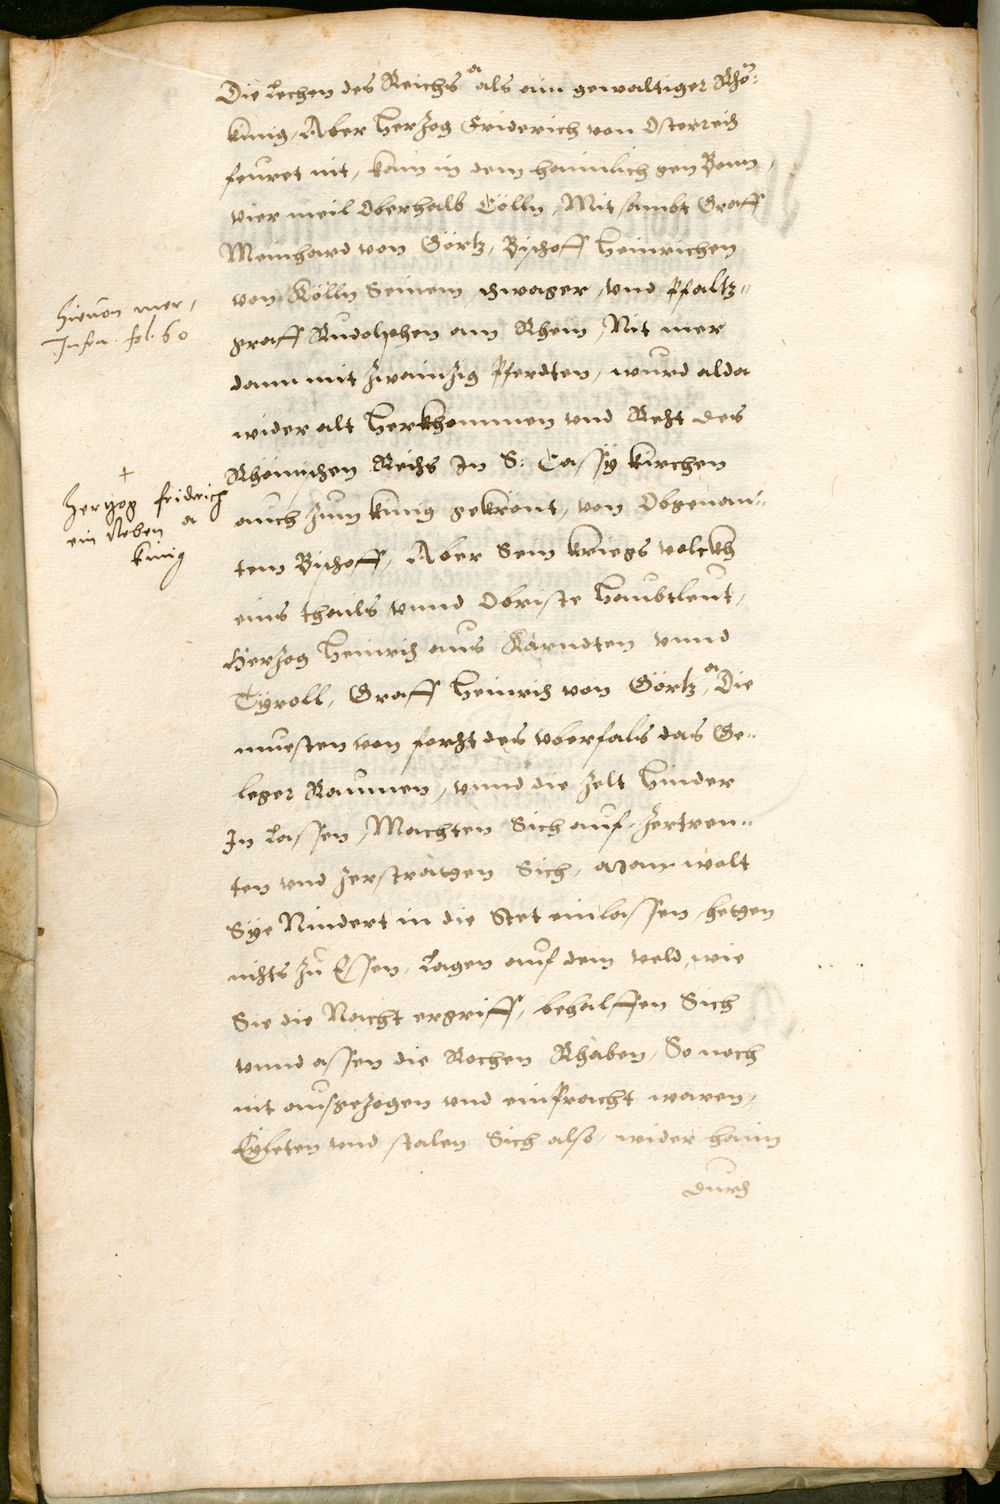 Die Lechen des Reichs als ain gewaltiger Rhö:
kunig, Aber Herzog Friderich von Osterreich
feuret nit, kam in dem haimlich gen Bonn,
vier meil Oberhalb Cölln, Mit sambt Graff
Meinhard von Görtz, Bischoff Heinrichen
von Kölln Seinem schwager, vnd Pfaltz=
graff Rudolphen am Rhein, Nit mer
dann mit zwainzig Pferdten, wurd alda
wider alt Herkhommen vnd Recht des
Rhömischen Reichs In S: Cassy kirchen
auch zum kunig gekrönt, von Obgenan=
tem Bischoff, Aber Sein kriegs volckh
eins thails vnnd Obriste Haubtleut,
Herzog Heinrich aus Karndten vnnd
Tyroll, Graff Heinrich von Görtz, Die
muesten von forcht des vberfals das Ge=
leger Raumen, vnnd die zelt Hinder
In lassen, Machten Sich auf, zertren=
ten vnd zerstraten Sich, Man wolt
Sye Nindert in die Stet einlassen, heten
nichts zu Essen, lagen auf dem veld, wie
Sie die Nacht ergriff, behalffen Sich
vnnd assen die Rochen Rhaben, So noch
nit ausgezogen vnd einpracht waren,
vnd stalen Sich also, wider haim
durch
hieuon mer,
Infra. fol. 60
+
Hertzog Fridrich
ein Neben
künig